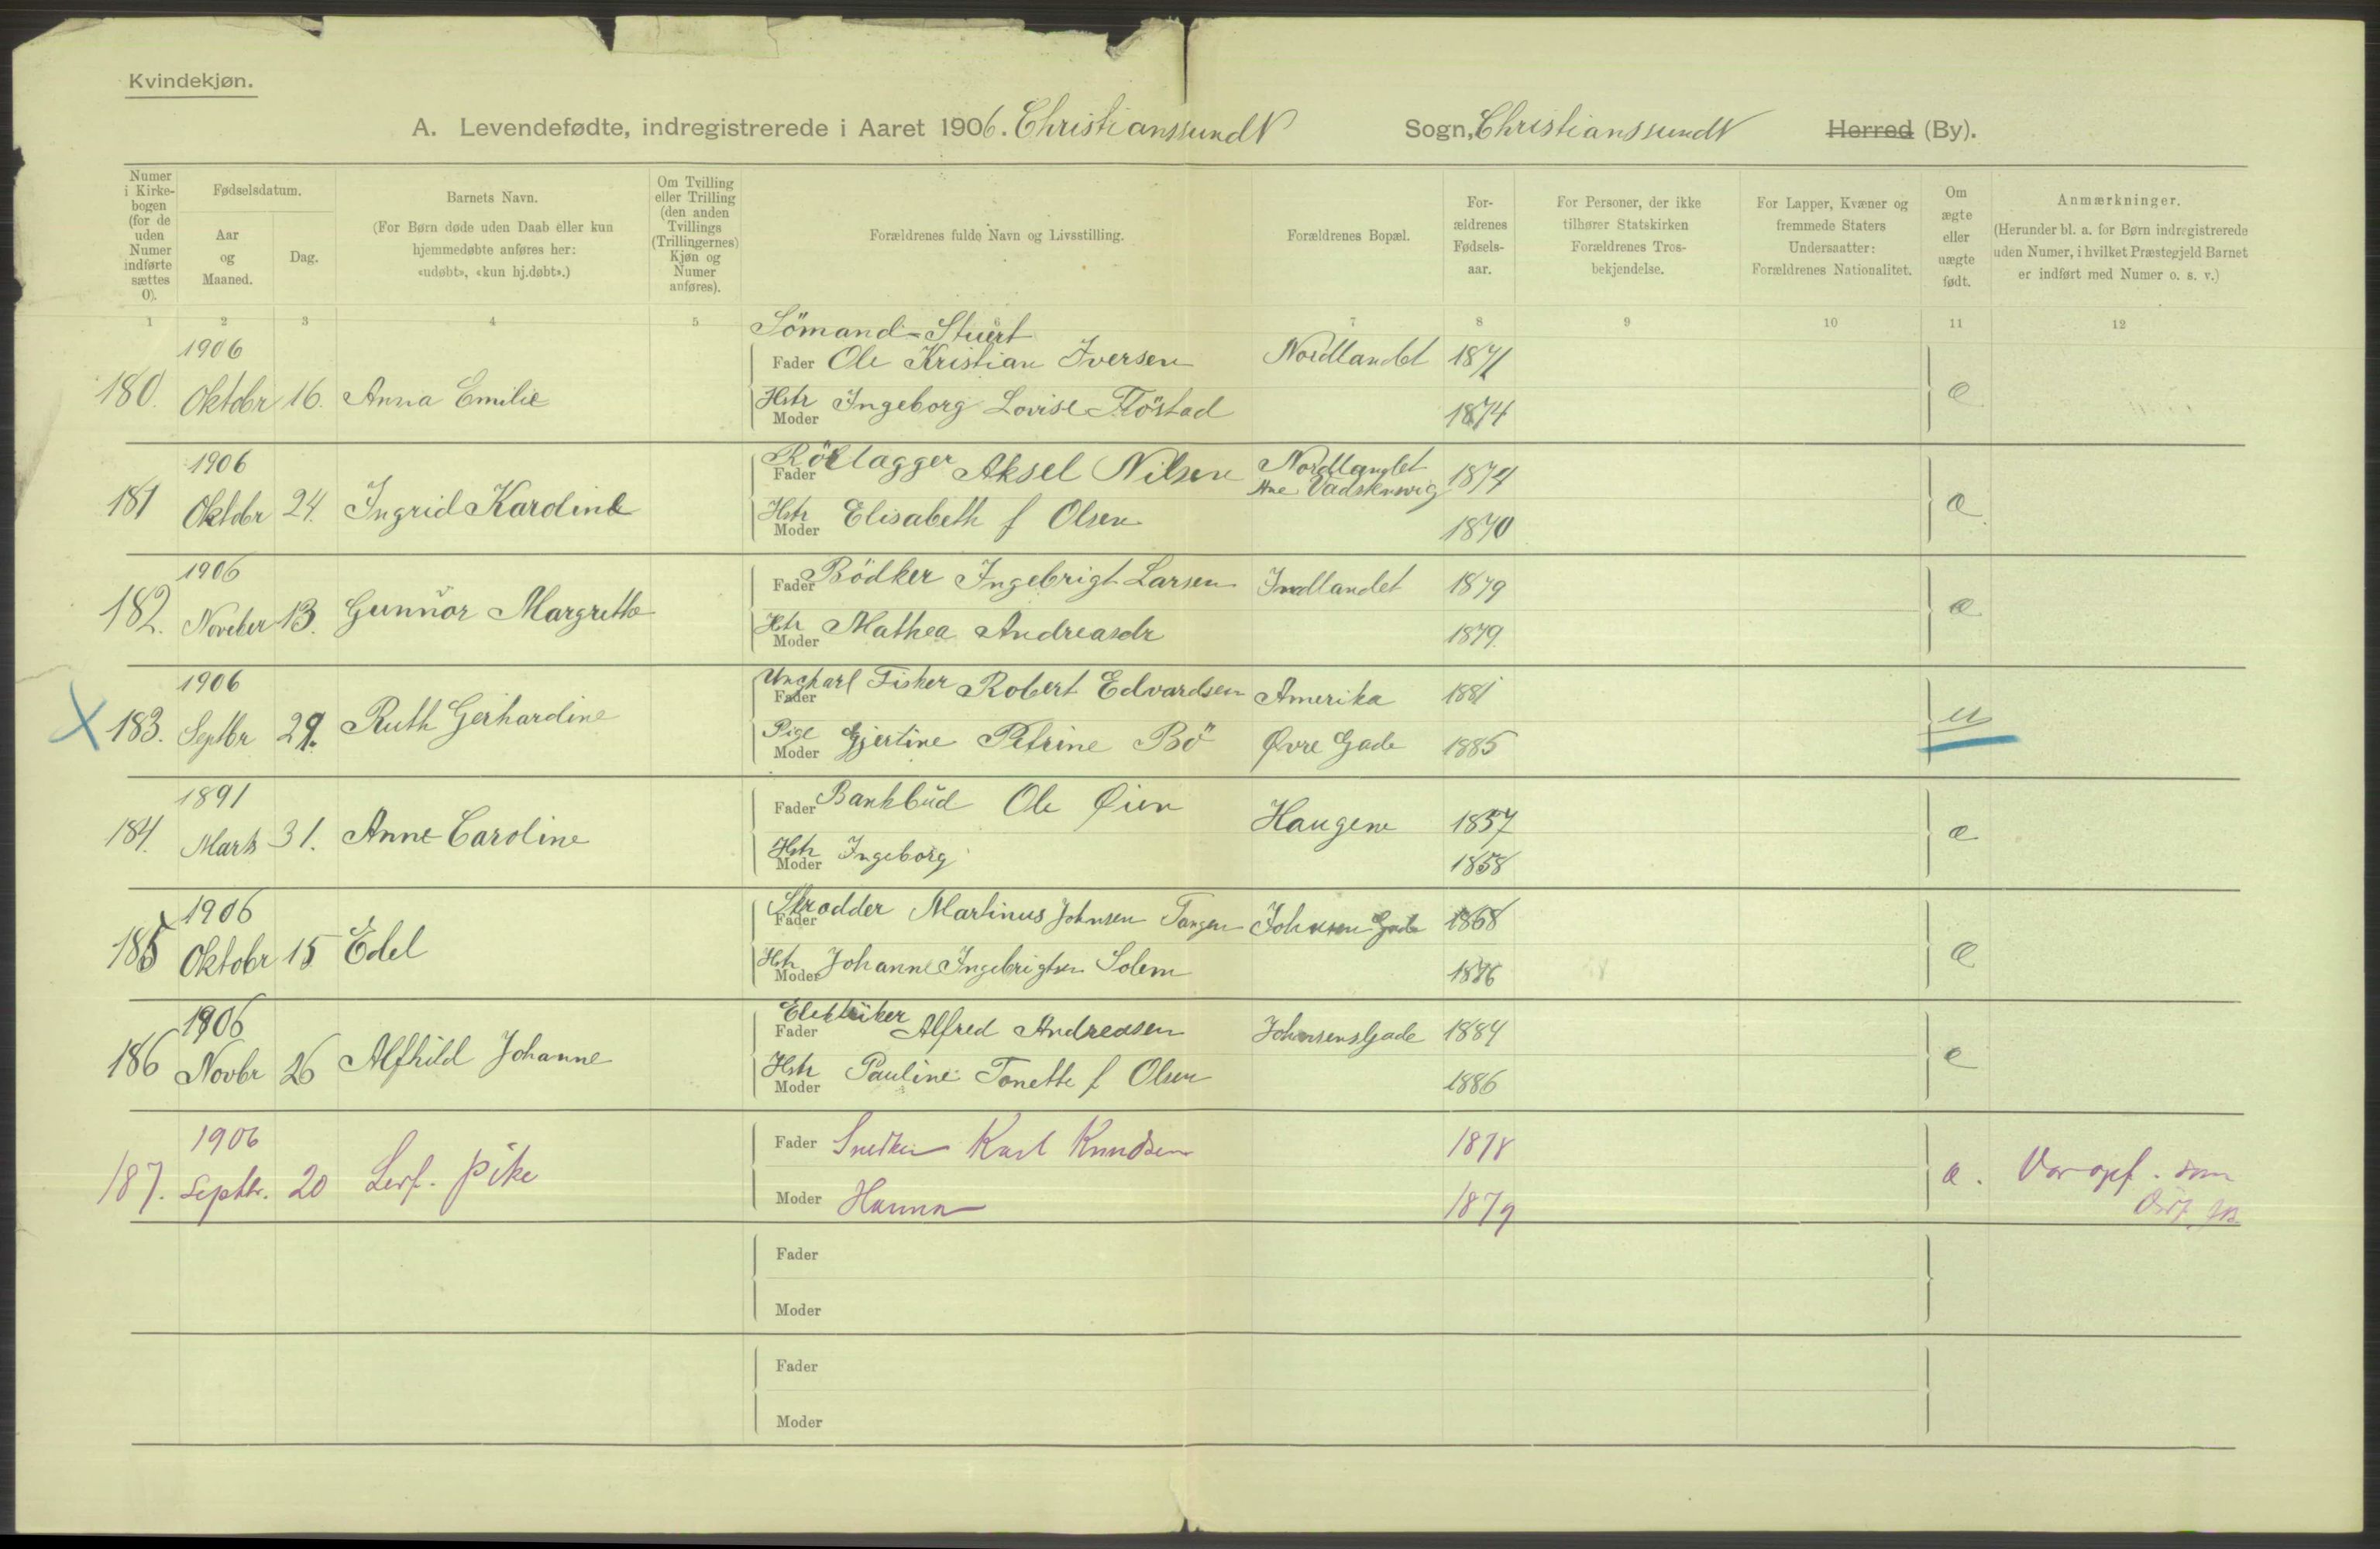 Kvindekjøn.
A. Levendefødte, indregistrerede i Aaret 1906. Christianssund N Sogn, Christianssund N Herred (By).
Numer i Kirkebogen (for de uden Numer indførte sættes 0).
Fødselsdatum.
Aar og Maaned.
Dag.
Barnets Navn.
(For Børn døde uden Daab eller kun hjemmedøbte anføres her: «udøbt», «kun hj.døbt».)
Om Tvilling eller Trilling (den anden Tvillings (Trillingernes) Kjøn og Numer anføres).
Forældrenes fulde Navn og Livsstilling.
Forældrenes Bopæl.
Forældrenes Fødselsaar.
For Personer, der ikke tilhører Statskirken Forældrenes Trosbekjendelse.
For Lapper, Kvæner og fremmede Staters Undersaatter: Forældrenes Nationalitet.
Om ægte eller uægte født.
Anmærkninger.
(Herunder bl. a. for Børn indregistrerede uden Numer, i hvilket Præstegjeld Barnet er indført med Numer o. s. v.)
1 2 3 4 5 6 7 8 9 10 11 12
Sömand-Stuert
1906
Fader Ole Kristian Iversen Nordlandet 1871
180. Oktobr 16. Anna Emilie æ
Hstr Moder Ingeborg Lovise Flöstad 1874
1906
Fader Aksel Nilsen Nordlandet 1874
181 Oktobr 24. Ingrid Karoline æ
Hstr Moder Elisabeth f Olsen 1870
1906
Fader Bödker Ingebrigt Larsen Indlandet 1879
182. Noveber 13. Gunnor Margrethe æ
Hstr Moder Mathea Andreasdr 1879.
1906
Ungkarl Fisker Fader Robert Edvardsen Amerika 1881
183. Septbr 29. Ruth Gerhardine u
Pige Moder Gjertine Petrine Bö Øvre Gade 1885
1891
Fader Bankbud Ole Øien Haugene 1857
184. Marts 31. Anne Caroline æ
Hstr Moder Ingeborg 1858
1906
Skrædder Fader Martinus Johnsen Tangen Johnsen Gade 1868
185 Oktobr 15 Edel æ
Hstr Moder Johanne Ingebrigtsen Solem 1876
1906
Elektriker Fader Alfred Andreasen Johnsens Gade 1884
186 Novbr 26 Alfhild Johanne æ
Hstr Moder Pauline Tonette f Olsen 1886
1906
Fader Snedker Karl Knudsen 1878
187. Septbr. 20 Levf. pike æ. Var opf. som
Moder Hanna 1879
Fader
Moder
Fader
Moder